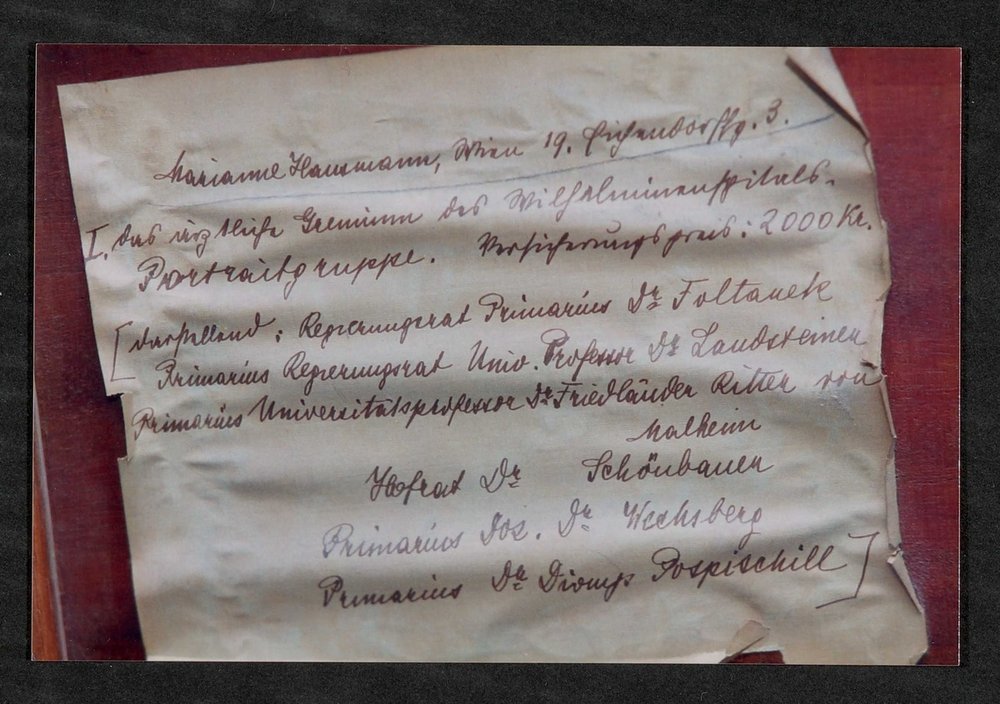 Marianne Hausmann, Wien 19. Eichendorffg. 3.
I. das ärztliche Gremium des Wilhelminenspitals.
Portraitgruppe. Versicherungspreis: 2000 Kr.
[darstellend: Regierungsrat Primarius Dr Foltanek
Primarius Regierungsrat Univ. Professor Dr Landsteiner
Primarius Universitätsprofessor Dr Friedländer Ritter von
Malheim
Hofrat Dr Schönbauer
Primarius Doz. Dr Wechsberg
Primarius Dr Dionys Pospischill]